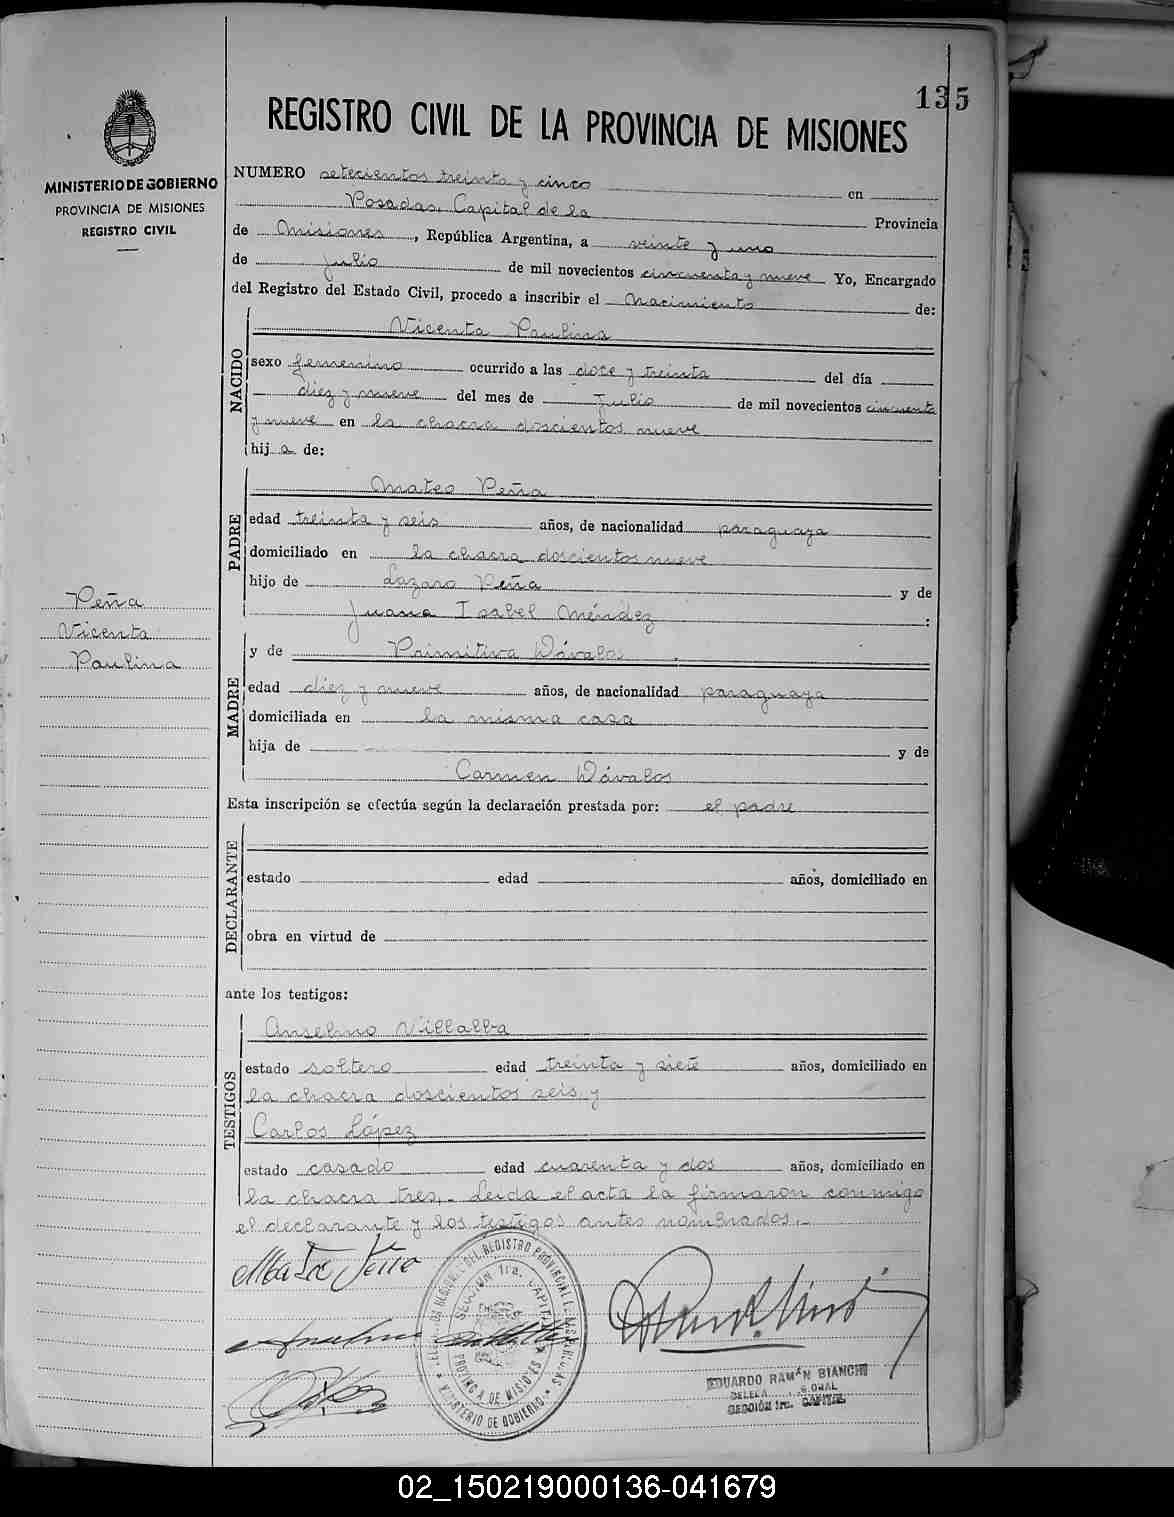 135
REGISTRO CIVIL DE LA PROVINCIA DE MISIONES
MINISTERIO DE GOBIERNO
PROVINCIA DE MISIONES
REGISTRO CIVIL
NUMERO setecientos treinta y cinco en
Posadas, Capital de la Provincia
de Misiones, República Argentina, a veinte y uno
de Julio de mil novecientos cincuenta y nueve Yo, Encargado
del Registro del Estado Civil, procedo a inscribir el Nacimiento de:
NACIDO
Vicenta Paulina
sexo femenino ocurrido a las doce y treinta del día
diez y nueve del mes de Julio de mil novecientos cincuenta
y nueve en la chacra doscientos nueve
hij a de:
PADRE
Mateo Peña
edad treinta y seis años, de nacionalidad paraguaya
domiciliado en la chacra doscientos nueve
hijo de Lazaro Peña y de
Juana Isabel Méndez :
Peña
Vicenta
Paulina
MADRE
y de Primitiva Dávalos
edad diez y nueve años, de nacionalidad paraguaya
domiciliada en la misma casa
hija de y de
Carmen Dávalos
Esta inscripción se efectúa según la declaración prestada por: el padre
DECLARANTE
estado edad años, domiciliado en
obra en virtud de
ante los testigos:
TESTIGOS
Anselmo Villalba
estado soltero edad treinta y siete años, domiciliado en
la chacra doscientos seis y
Carlos López
estado casado edad cuarenta y dos años, domiciliado en
la chacra tres.- Leida el acta la firmaron conmigo
el declarante y los testigos antes nombrados.-
SECCION 1ra. CAPITAL
PROVINCIA DE MISIONES
MINISTERIO DE GOBIERNO
EDUARDO RAMON BIANCHI
SECCIÓN 1ra. CAPITAL
02_150219000136-041679